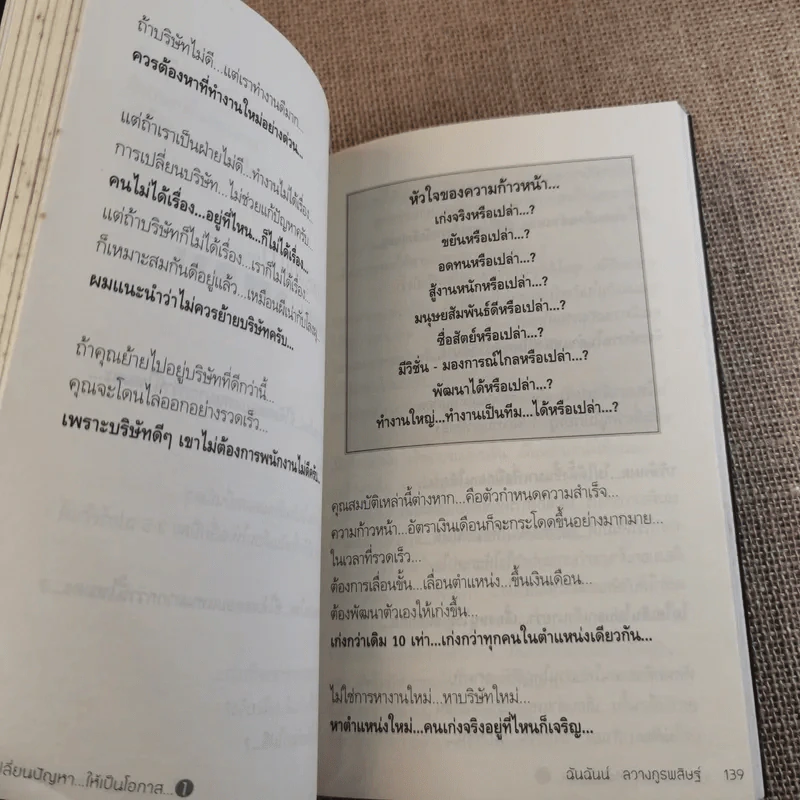 ถ้าบริษัทไม่ดี...แต่เราทำงานดีมาก...
ควรต้องหาที่ทำงานใหม่อย่างด่วน...
แต่ถ้าเราเป็นฝ่ายไม่ดี...ทำงานไม่ได้เรื่อง...
การเปลี่ยนบริษัท...ไม่ช่วยแก้ปัญหาครับ...
คนไม่ได้เรื่อง...อยู่ที่ไหน...ก็ไม่ได้เรื่อง...
แต่ถ้าบริษัทก็ไม่ได้เรื่อง...เราก็ไม่ได้เรื่อง...
ก็เหมาะสมกันดีอยู่แล้ว...เหมือนผีเน่ากับโลงผุ...
ผมแนะนำว่าไม่ควรย้ายบริษัทครับ...
ถ้าคุณย้ายไปอยู่บริษัทที่ดีกว่านี้...
คุณจะโดนไล่ออกอย่างรวดเร็ว...
เพราะบริษัทดีๆ เขาไม่ต้องการพนักงานไม่ดีครับ...
ปลี่ยนปัญหา...ให้เป็นโอกาส...1
หัวใจของความก้าวหน้า...
เก่งจริงหรือเปล่า...?
ขยันหรือเปล่า...?
อดทนหรือเปล่า...?
สู้งานหนักหรือเปล่า...?
มนุษยสัมพันธ์ดีหรือเปล่า...?
ซื่อสัตย์หรือเปล่า...?
มีวิชั่น - มองการณ์ไกลหรือเปล่า...?
พัฒนาได้หรือเปล่า...?
ทำงานใหญ่...ทำงานเป็นทีม...ได้หรือเปล่า...?
คุณสมบัติเหล่านี้ต่างหาก...คือตัวกำหนดความสำเร็จ...
ความก้าวหน้า...อัตราเงินเดือนก็จะกระโดดขึ้นอย่างมากมาย...
ในเวลาที่รวดเร็ว...
ต้องการเลื่อนชั้น...เลื่อนตำแหน่ง...ขึ้นเงินเดือน...
ต้องพัฒนาตัวเองให้เก่งขึ้น...
เก่งกว่าเดิม 10 เท่า...เก่งกว่าทุกคนในตำแหน่งเดียวกัน...
ไม่ใช่การหางานใหม่...หาบริษัทใหม่...
หาตำแหน่งใหม่...คนเก่งจริงอยู่ที่ไหนก็เจริญ...
ฉันฉันน์ ลวางกูรพสิษฐ์ 139